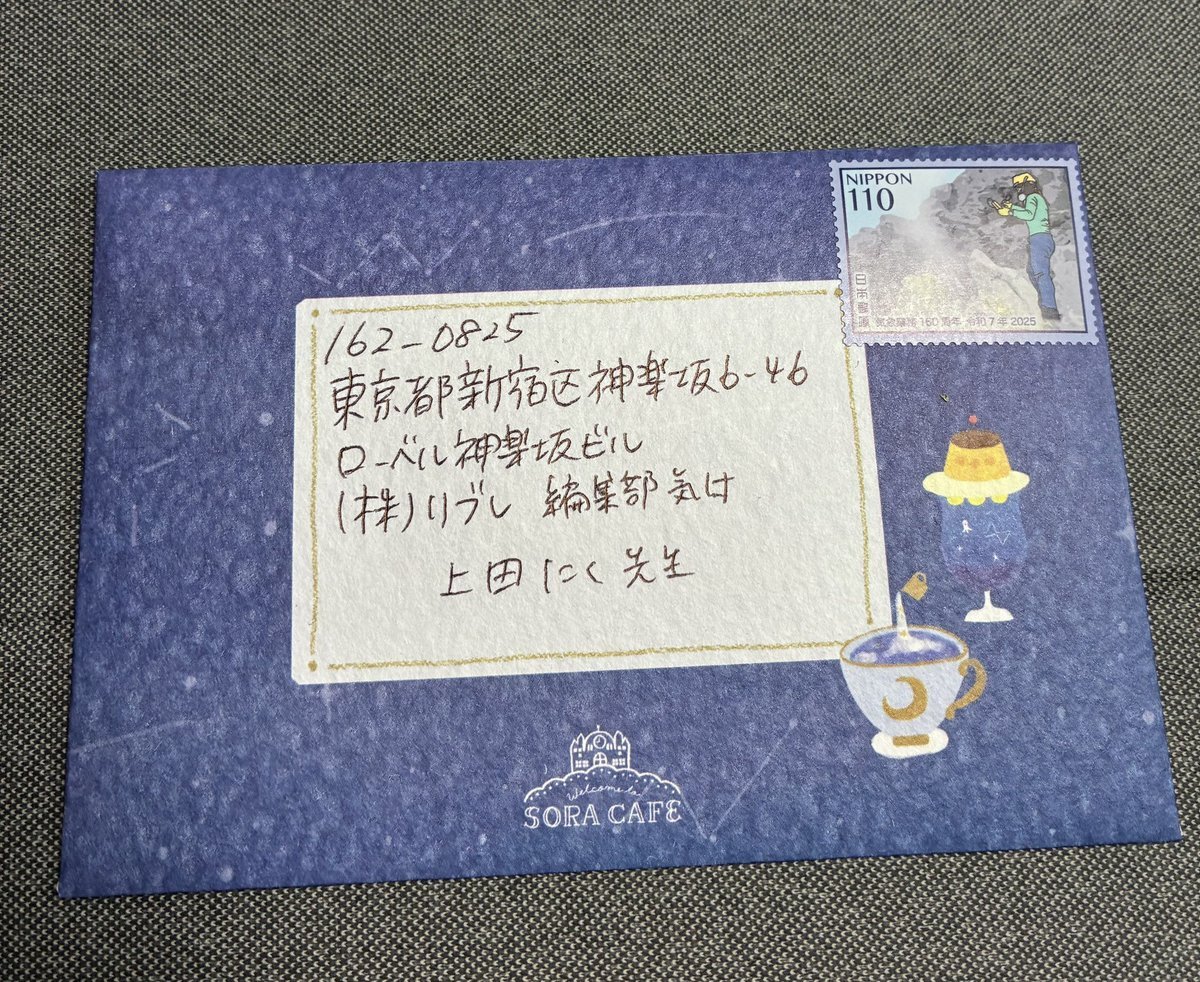 NIPPON
110
日本郵便
気象業務150周年 令和7年 2025
162-0825
東京都新宿区神楽坂6-46
ローベル神楽坂ビル
(株)リブレ 編集部気付
上田にく先生
Welcome to
SORA CAFE